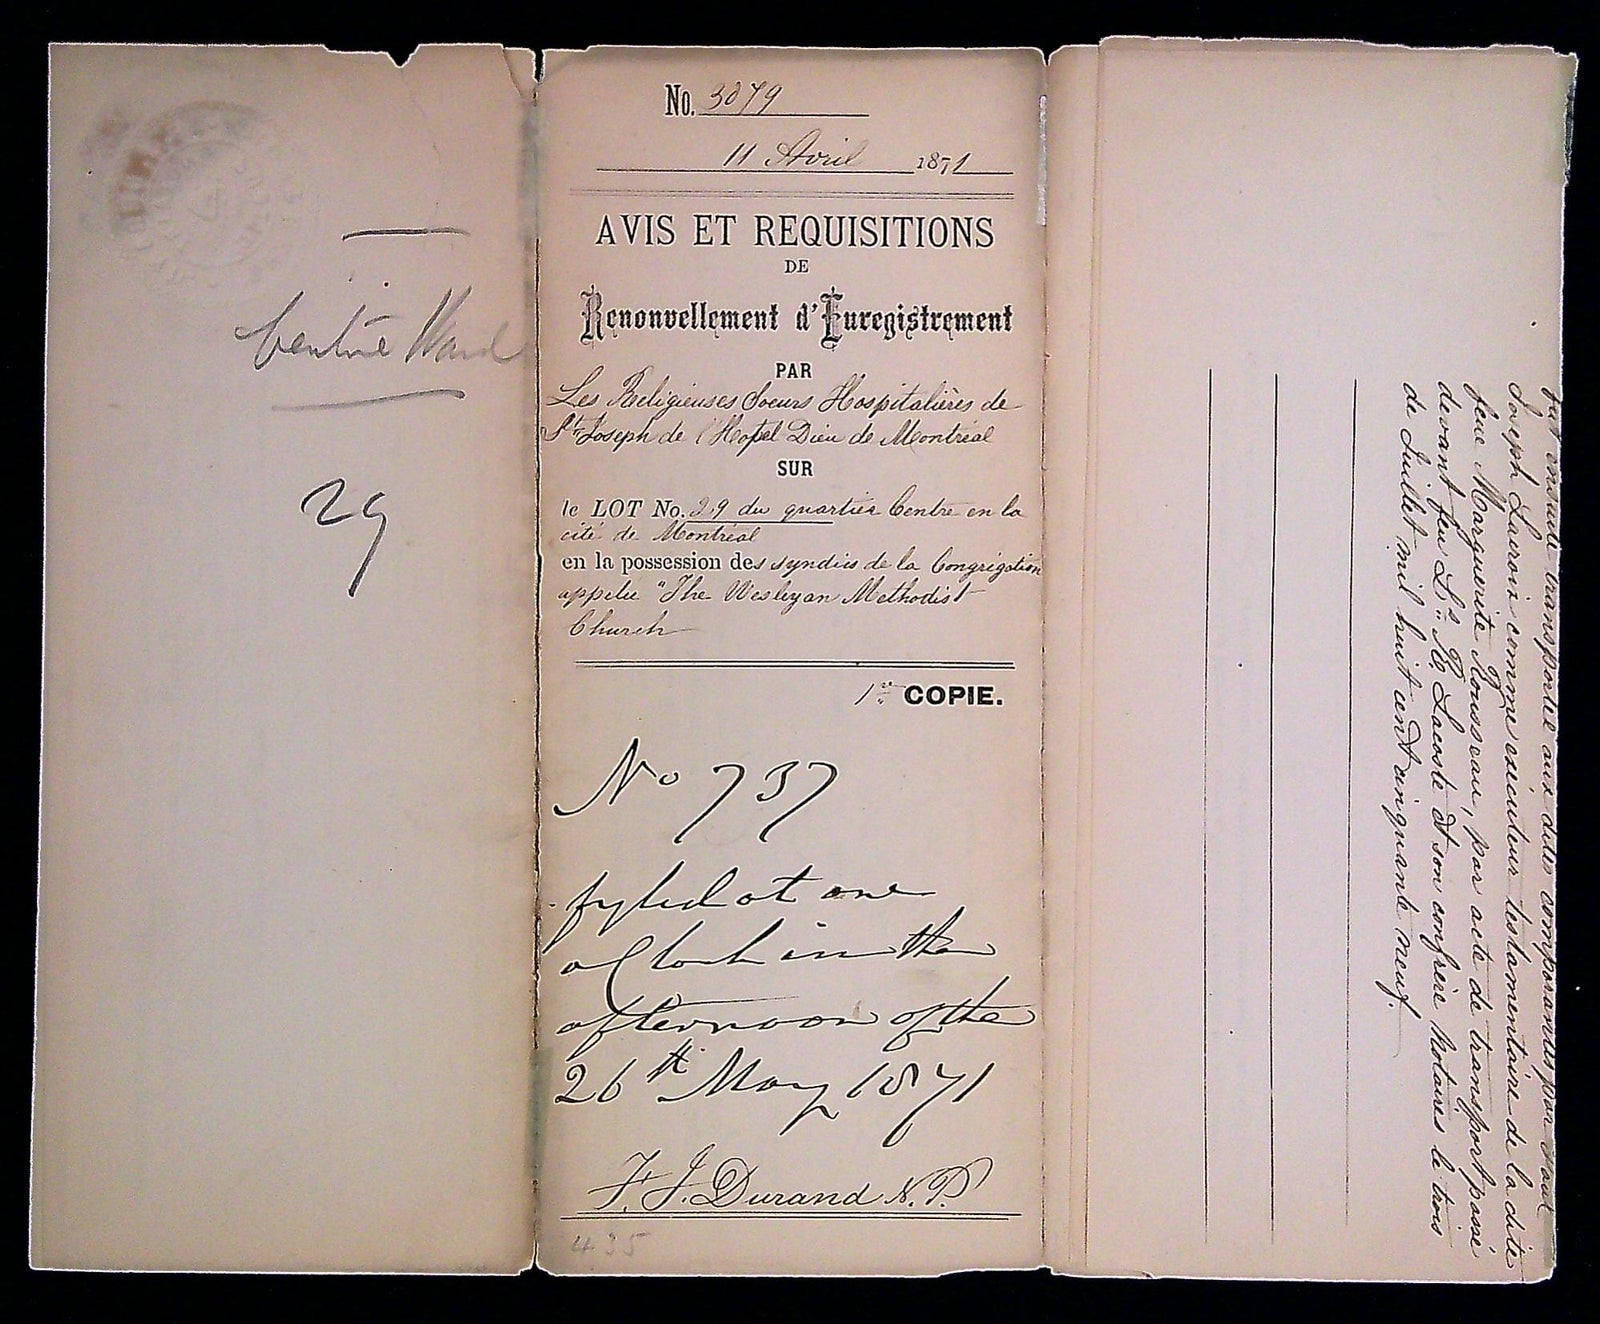 Centre Ward
29
No. 3079
11 Avril 1871
AVIS ET REQUISITIONS
DE
Renouvellement d'Enregistrement
PAR
Les Religieuses Soeurs Hospitalières de
St. Joseph de l'Hotel Dieu de Montréal
SUR
le LOT No. 29 du quartier Centre en la
cité de Montréal
en la possession des syndics de la Congrégation
appelée "The Wesleyan Methodist
Church
1re COPIE.
No 737
fyled at one
o Clock in the
afternoon of the
26th May 1871
F. J. Durand N.P.
435
ensuite transportée aux dites comparantes par
Joseph Lacroix comme exécuteur testamentaire de la dite
feue Marguerite Rousseau, par acte de transport passé
devant feu Ls. R. Lacoste et son confrère Notaires le trois
de Juillet mil huit cent cinquante neuf.